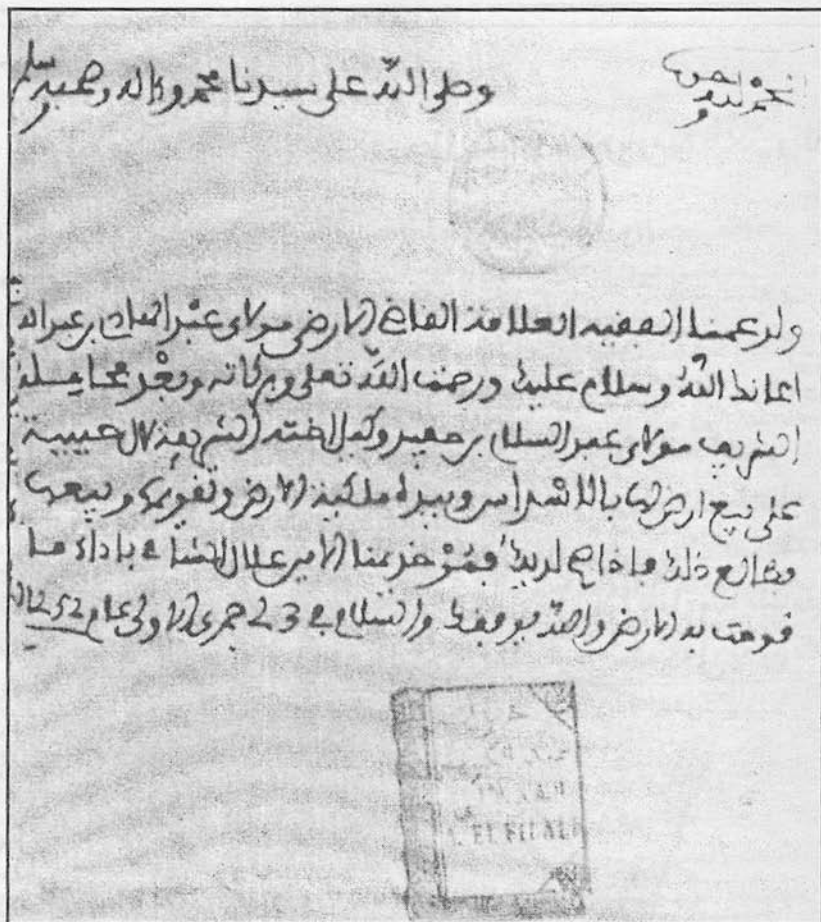 الحمد لله وحده
وصلى الله على سيدنا محمد وءاله وصحبه وسلم
ولد عمنا الفقيه العلامة القاضي الارضى مولاي عبد الهادي بن عبد الله
اعانك الله وسلام عليك ورحمت الله تعلى وبركاته وبعد
الشريف مولاي عبد السلام بن حفيد وكيل اخته الشريفة للا حبيبة
على بيع ارض لها بالاشراس وبيده ملكية الارض وتقويمها وبيعها
فطالع ذلك فاذا صح لديك فمر خديمنا الامين علال الشامي باداء ما
قومت به الارض والله يوفقك والسلام في 23 جمدى الاولى عام 1252
EL FILALI